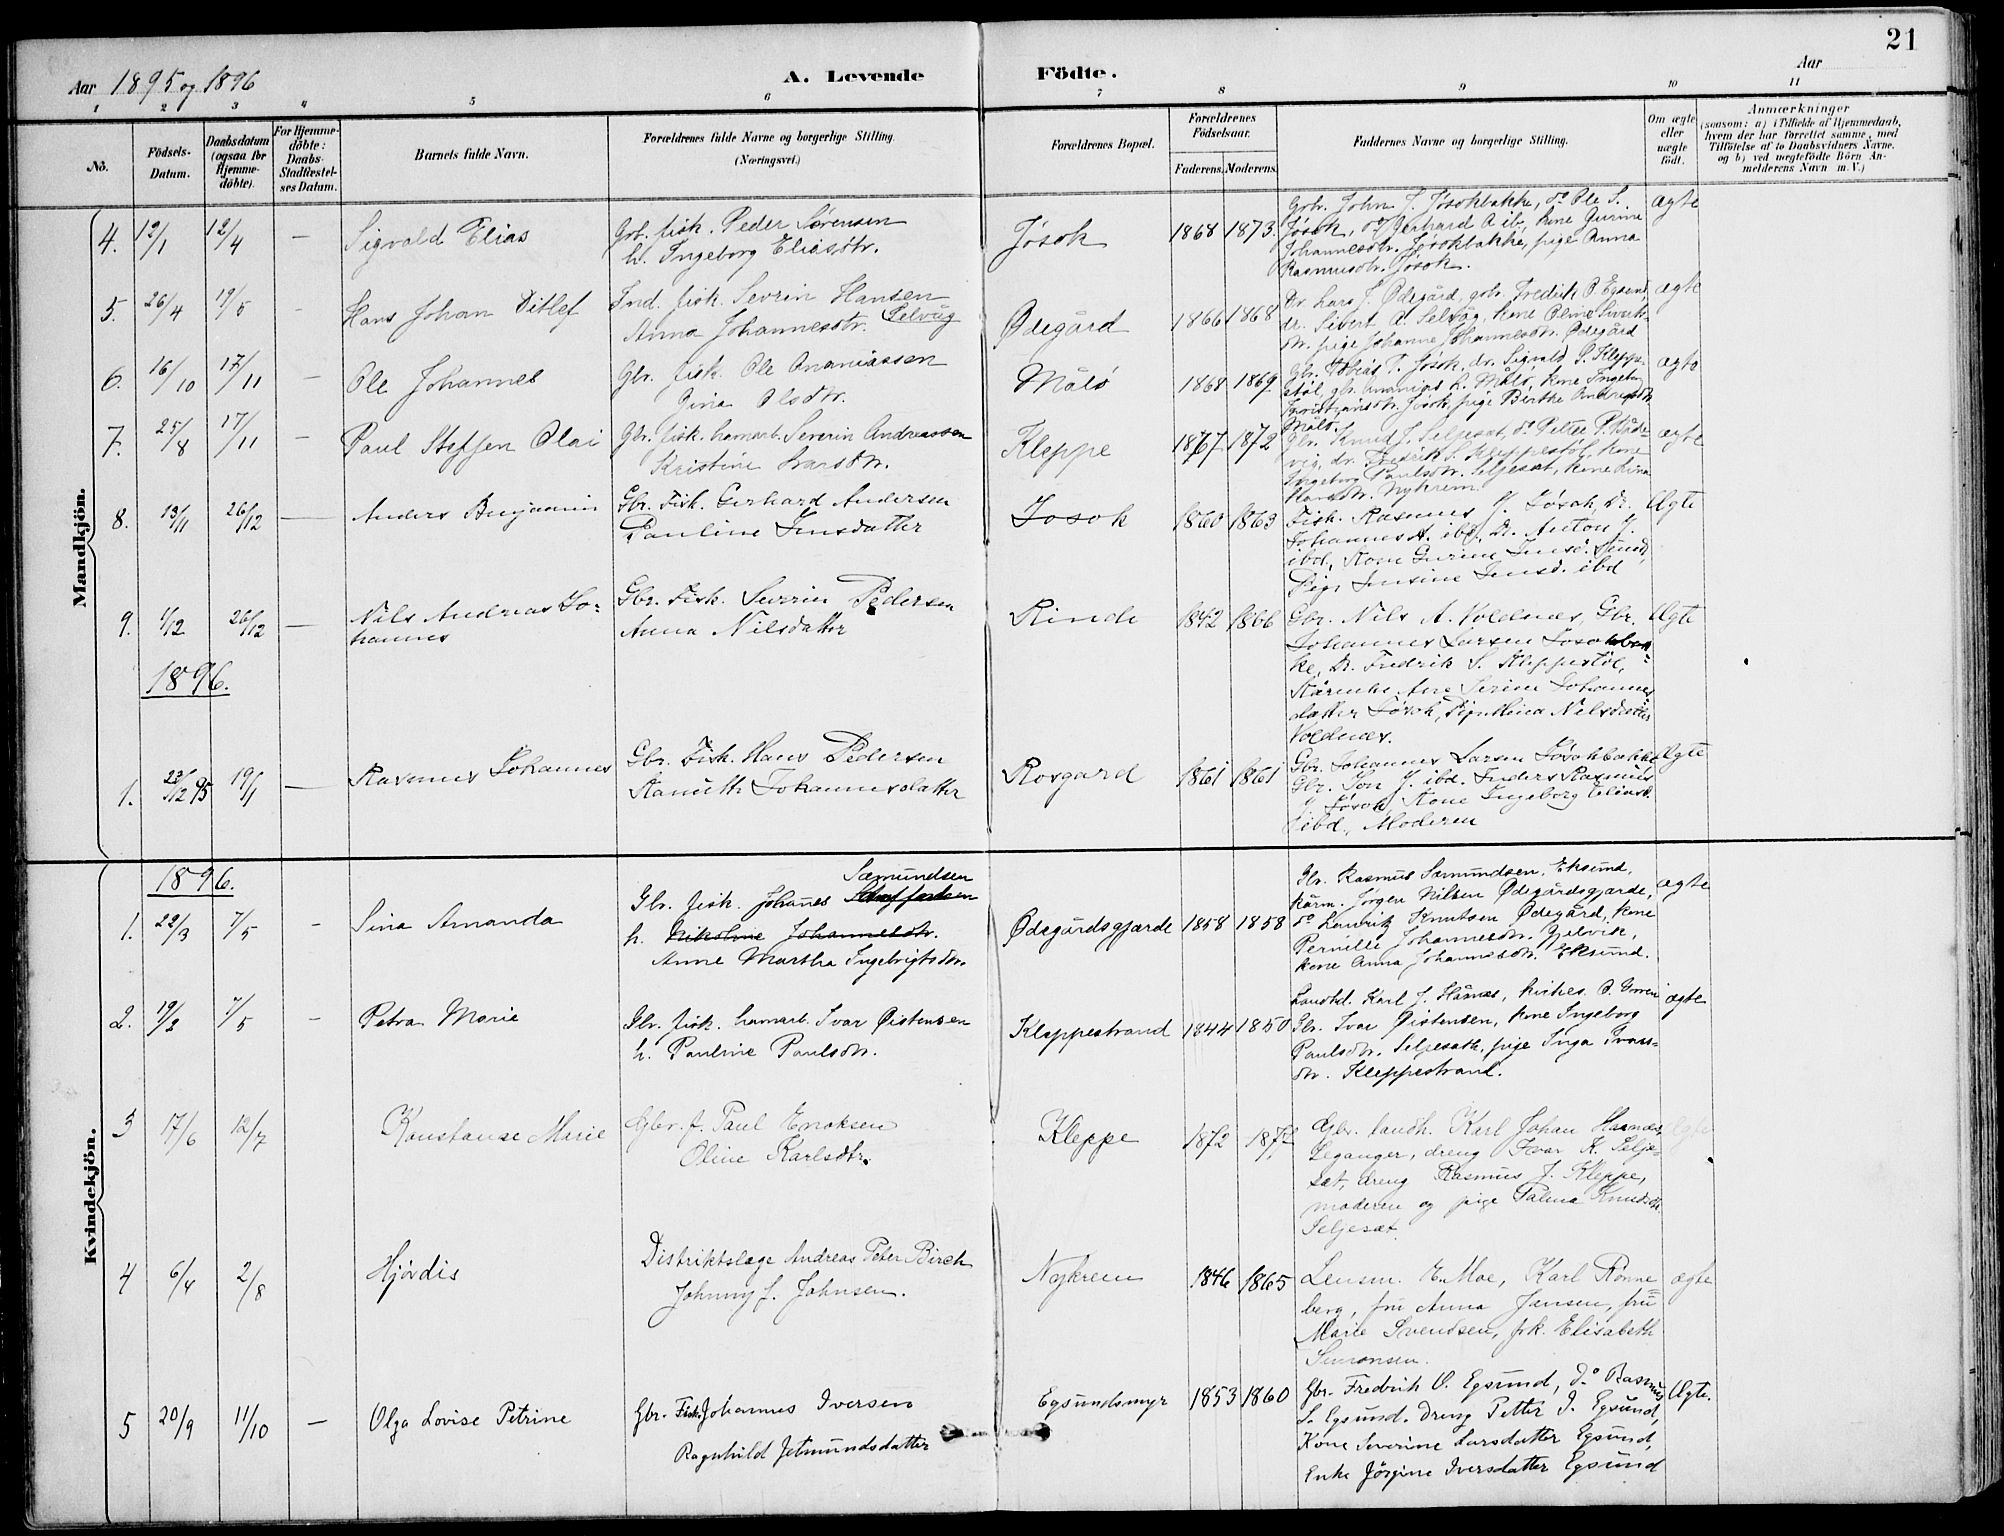 21
Aar 1895 og 1896
A. Levende Födte.
Aar
1 2 3 4 5 6 7 8 9 10 11
No.
Födsels-Datum.
Daabsdatum (ogsaa for Hjemme-döbte).
For Hjemme-döbte: Daabs-Stadfæstel-ses Datum.
Barnets fulde Navn.
Forældrenes fulde Navne og borgerlige Stilling. (Næringsvei.)
Forældrenes Bopæl.
Forældrenes Födselsaar.
Faderens. Moderens.
Faddernes Navne og borgerlige Stilling.
Om ægte eller uægte födt.
Anmærkninger
(saasom: a) i Tilfælde af Hjemmedaab, hvem der har forrettet samme, med Tilföielse af to Daabsvidners Navne, og b) ved uægtefödte Börn An-melderens Navn m.V.)
Mandkjön.
4. 12/1 12/4 — Sigvald Elias
Gbr. fisk. Peder Sørensen
h. Ingeborg Eliasdtr.
Jøsok 1868 1873.
Gbr. John J. Jøsokbakke, do Ole S.
Jøsok, do Gerhard A ib., kone Gurine
Johannesdtr. Jøsokbakke, pige Anna
Rasmusdtr. Jøsok.
ægte
5. 26/4 19/5 - Hans Johan Ditlef
Ind. fisk. Sevrin Hansen
Anna Johannesdtr. Selvåg
Ødegård 1866 1868
Dr. Lars J. Ødegård, gbr. Fredrik O. Egsund,
dr. Sivert A. Selvåg, kone Oline Sivert-
dtr. pige Johanne Johannesdtr. Ødegård
ægte
6. 16/10 17/11 — Ole Johannes
Gbr. fisk. Ole Ananiassen
Gina Olsdtr.
Målø 1868 1869
Gbr. Tobias T. Jøsok, dr. Sigvald P. Kleppe-
støl, gbr. Ananias L. Målø, kone Ingeborg
Kristiansdtr. Jøsok, pige Berthe Andreasdtr.
Målø.
ægte
7. 25/8 17/11 — Paul Steffen Olai
Gbr. fisk. hamarb. Severin Andreassen
Kristine Ivarsdtr.
Kleppe 1867 1872
Gbr. Knud J. Seljesæt, do Petter P.
vig, dr. Fredrik S. Kleppestøl, kone
Ingeborg Paulsdtr. Seljesæt, kone Lina
Hansdtr. Nykrem.
ægte
8. 13/11 26/12 — Anders Benjamin
Gbr. Fisk. Gerhard Andersen
Pauline Jensdatter
Josok 1860 1863
Fisk. Rasmus J. Jøsok, Dr.
Johannes A. ibd, Dr. Anton J.
ibd, Kone Gurine Jensd.
Pige Jensine Jensd. ibd
Ægte
9. 4/12 26/12 — Nils Andreas Jo-
hannes
Gbr. Fisk. Severin Pedersen
Anna Nilsdatter
Rinde 1842 1866
Gbr. Nils A. Voldnes, Gbr.
Johannes Larsen Jøsokbak-
ke, Dr. Fredrik S. Kleppestøl,
Kårenke Ane Serine Johannes
datter Jøsok, Pige Nilsdatter
Voldnes.
Ægte
1896.
1. 23/12 95 19/1 — Rasmus Johannes
Gbr. Fisk. Hans Pedersen
Kanutte Johannesdatter
Rosgard 1861 1861
Gbr. Johannes Larsen Jøsokbakke
Gbr. Jon J. ibd. Inders Rasmus
J. Jøsok, Kone Ingeborg Eliasd.
ibd., Moderen
Ægte
Kvindekjön.
1896.
1. 22/3 7/5 - Sina Amanda
Sæmundsen
Gbr. fisk. Johanes
h. Nikoline Johannesdtr.
Anne Martha Ingebrigtsdtr.
Ødegårdsgjærde 1858 1858
Gbr. Rasmus Sæmundsen, Eksund,
kårm. Jørgen Nilsen Ødegårdsgjærde,
do Lauritz Knutsen Ødegård, kone
Pernille Johannesdtr. Gjelvik,
kone Anna Johannesdtr. Eksund.
ægte
2. 19/3 7/5 - Petra Marie
Gbr. fisk. hamarb. Ivar Øistensen
h. Pauline Paulsdtr.
Kleppestrand 1844 1850
Landhd. Karl J. Hâmes, kirkes.
Gbr. Ivar Øistensen, kone Ingeborg
Paulsdtr. Seljesæth, pige Inga Ivars-
dtr. Kleppestrand.
ægte
3 17/6 12/7 Konstanse Marie
Gbr. f. Paul Enoksen
Oline Karlsdtr.
Kleppe 1872 1872
Gbr. landh. Karl Johan Haanæs,
Leganger, dreng Ivar K. Selje-
sæt, dreng Rasmus J. Kleppe,
moderen og pige Palma Knudsdtr
Seljesæt.
Ægte
4 6/4 2/8 Hjördis
Distriktslæge Andreas Peter Birch
Johnny J. Johnsen.
Nykrem 1846 1865
Lensm. E. Moe, Karl Rønne
berg, fru Anna Jensen, fru
Marie Svendsen, frk. Elisabeth
Simonsen.
ægte
5 20/9 11/10 — Olga Lovise Petrine
Gbr. Fisk. Johannes Iversen
Ragnhild Jetmundsdatter
Egsundsmyr 1853 1860
Gbr. Fredrik O. Egsund, Do Rasmus
S. Egsund. Dreng Petter J. Egsund,
Kone Severine Larsdatter Egsund,
Enke Jörgine Iversdatter Egsund
Ægte.